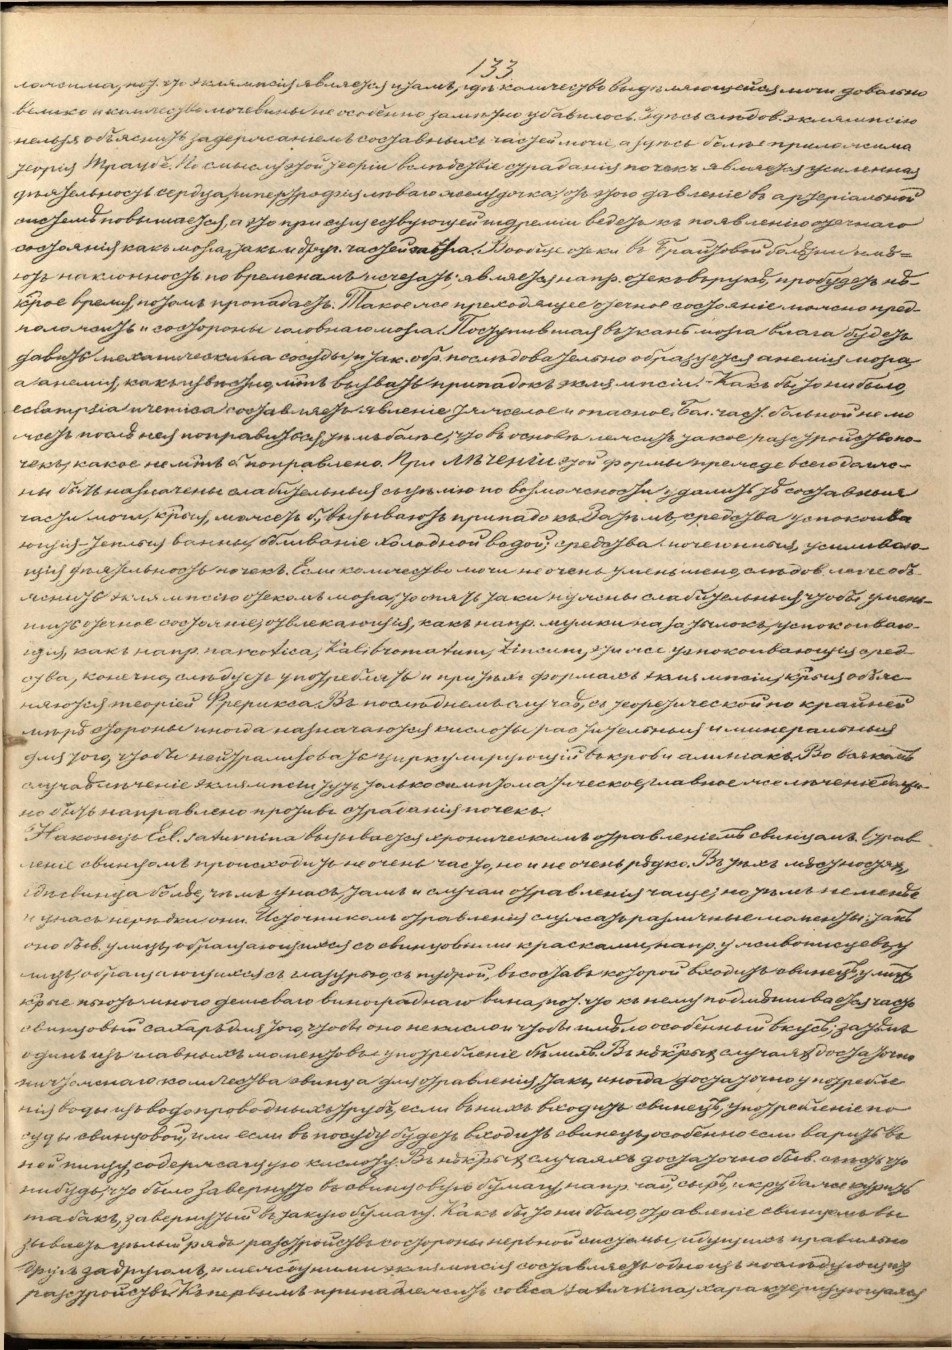 133
ложима, пот. что эклямпсия является и там, гдѣ количество выдѣляющейся мочи довольно
велико и количество мочевины не особенно замѣтно убавилось. Здѣсь слѣдов. эклямпсію
нельзя объяснить задержаніемъ составныхъ частей мочи, а здѣсь болѣе приложима
теорія Траубе. По смыслу этой теоріи вслѣдствіе страданія почекъ является усиленная
дѣятельность сердца, гипертрофія лѣваго желудочка; отъ этого давленіе въ артеріальной
системѣ повышается, а это при существующей гидреміи ведетъ къ появленію отечнаго
состоянія какъ мозга, такъ и друг. частей тѣла. Вообще отеки въ Брайтовой болѣзни имѣ=
ютъ наклонность по временамъ исчезать; является напр. отекъ въ рукѣ, пробудетъ нѣ-
к͞рое время, потомъ пропадаетъ. Такое же преходящее отечное состояніе можно пред-
положить и со стороны головнаго мозга. Поступившая въ ткань мозга влага будетъ
давить механически на сосуды, и так. обр. послѣдовательно образуется анемія мозга,
а анемія, какъ извѣстно, м. вызвать припадокъ эклямпсіи. - Какъ бы то ни было,
eclampsia uremica составляетъ явленіе тяжелое и опасное. Бол. част. больной не мо
жетъ послѣ нея поправиться, тѣмъ болѣе, что въ основѣ лежитъ такое разстройство по-
чекъ, какое не м. б. поправлено. При лѣченіи этой формы прежде всего долж-
ны быть назначены слабительныя съ цѣлію по возможности удалить тѣ составныя
части мочи, к͞рыя, можетъ б., вызываютъ припадокъ. Затѣмъ, средства успокоива
ющія - теплыя ванны, обливаніе холодной водой; средства мочегонныя, усиливаю-
щія дѣятельность почекъ. Если количество мочи не очень уменьшено, слѣдов. легче объ-
яснить эклямпсію отекомъ мозга, то опять таки нужны слабительныя, чтобы умень-
шить отечное состояніе, отвлекающія, какъ напр. мушки на затылокъ, успокоиваю-
щія, какъ напр. narcotica, Kali bromatum, Zincum, эти же успокоивающія сред
ства, конечно, слѣдуетъ употреблять и при тѣхъ формахъ эклямпсіи, к͞рыя объяс-
няются теоріей Фрерикса. Въ послѣднемъ случаѣ, съ теоретической по крайней
мѣрѣ стороны иногда назначаются кислоты растительныя и минеральныя
для того, чтобы нейтрализовать циркулирующій въ крови амміакъ. Во всякомъ
случаѣ лѣченіе эклямпсіи тутъ только симптоматическое, главное же лѣченіе долж-
но быть направлено противъ страданія почекъ.
Наконецъ Ecl. saturnina вызывается хроническимъ отравленіемъ свинцомъ. Отрав
леніе свинцомъ происходитъ не очень часто, но и не очень рѣдко. Въ тѣхъ мѣстностяхъ,
гдѣ свинца болѣе, чѣмъ у насъ, тамъ и случаи отравленія чаще; но тѣмъ не менѣе
и у насъ нерѣдки они. Источникомъ отравленія служатъ различные моменты: такъ
оно быв. у лицъ, обращающихся со свинцовыми красками, напр. у живописцевъ, у
лицъ, обращающихся съ глазурью, съ пудрой, въ составъ которой входитъ свинецъ, у лицъ,
к͞рые пьютъ много дешеваго винограднаго вина, пот. что къ нему подмѣшивается часто
свинцовый сахаръ для того, чтобы оно не кисло и чтобы имѣло особенный вкусъ; затѣмъ
одинъ изъ главныхъ моментовъ употребленіе бѣлилъ. Въ нѣк͞рыхъ случаяхъ достаточно
ничтожнаго количества свинца для отравленія, такъ, иногда достаточно употребле
нія воды изъ водопроводныхъ трубъ, если въ нихъ входитъ свинецъ, употребленіе по
суды свинцовой, или если въ посуду будетъ входить свинецъ, особенно если варить въ
ней пищу содержащую кислоту. Въ нѣк͞рыхъ случаяхъ достаточно быв. если что
нибудь, что было завернуто въ свинцовую бумагу, напр. чай, сыръ, икру, также курить
табакъ, завернутый въ такую бумагу. Какъ бы то ни было, отравленіе свинцомъ вы
зываетъ цѣлый рядъ разстройствъ со стороны нервной системы, идущихъ правильно
другъ за другомъ, и между ними эклямпсія составляетъ одно изъ послѣдующихъ
разстройствъ. Къ первымъ принадлежитъ colica saturnina, характеризующаяся